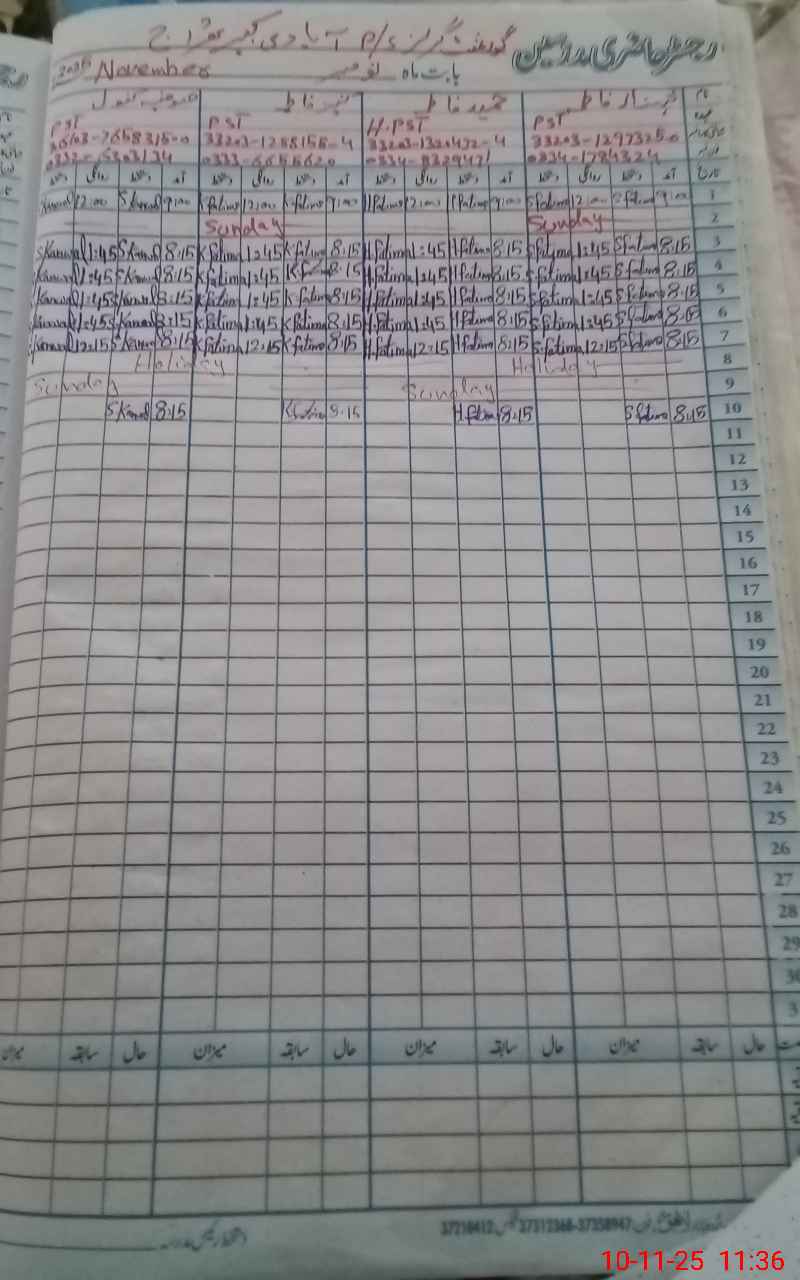 رجسٹر حاضری مدرسین گورنمنٹ گرلز P/S آبادی
بابت ماہ نومبر November 2025
نام شہناز فاطمہ حمید فاطمہ کنیز فاطمہ کنول
عہدہ PST H.PST PST PST
33203-1297325-0 33203-1320432-4 33203-1288158-4 36103-7658315-0
0334-1784324 0333-6656620 0332-6303134
تاریخ آمد دستخط روانگی دستخط آمد دستخط روانگی دستخط آمد دستخط روانگی دستخط آمد دستخط روانگی دستخط
1 9:00 S fatima 12:00 S fatima 9:00 H fatima 12:00 H fatima 9:00 K fatima 12:00 K fatima 9:00 S Kanwal 12:00 Kanwal
2 Sunday Sunday
3 8:15 S fatima 1:45 S fatima 8:15 H fatima 1:45 H fatima 8:15 K fatima 1:45 K fatima 8:15 S Kanwal 1:45 S Kanwal
4 8:15 S fatima 1:45 S fatima 8:15 H fatima 1:45 H fatima 8:15 K.F 1:45 K fatima 8:15 S Kanwal 1:45 S Kanwal
5 8:15 S fatima 1:45 S fatima 8:15 H fatima 1:45 H fatima 8:15 K fatima 1:45 K fatima 8:15 S Kanwal 1:45 S Kanwal
6 8:15 S fatima 1:45 S fatima 8:15 H fatima 1:45 H fatima 8:15 K fatima 1:45 K fatima 8:15 S Kanwal 1:45 S Kanwal
7 8:15 S fatima 12:15 S fatima 8:15 H fatima 12:15 H fatima 8:15 K fatima 12:15 K fatima 8:15 S Kanwal 12:15 S Kanwal
8 Holiday Holiday
9 Sunday Sunday
10 8:15 S fatima 8:15 H fatima 8:15 K fatima 8:15 S Kanwal
11
12
13
14
15
16
17
18
19
20
21
22
23
24
25
26
27
28
29
30
3
حال سابقہ میزان حال سابقہ میزان حال سابقہ میزان حال سابقہ میزان
37216412 37312368-37358947
10-11-25 11:36